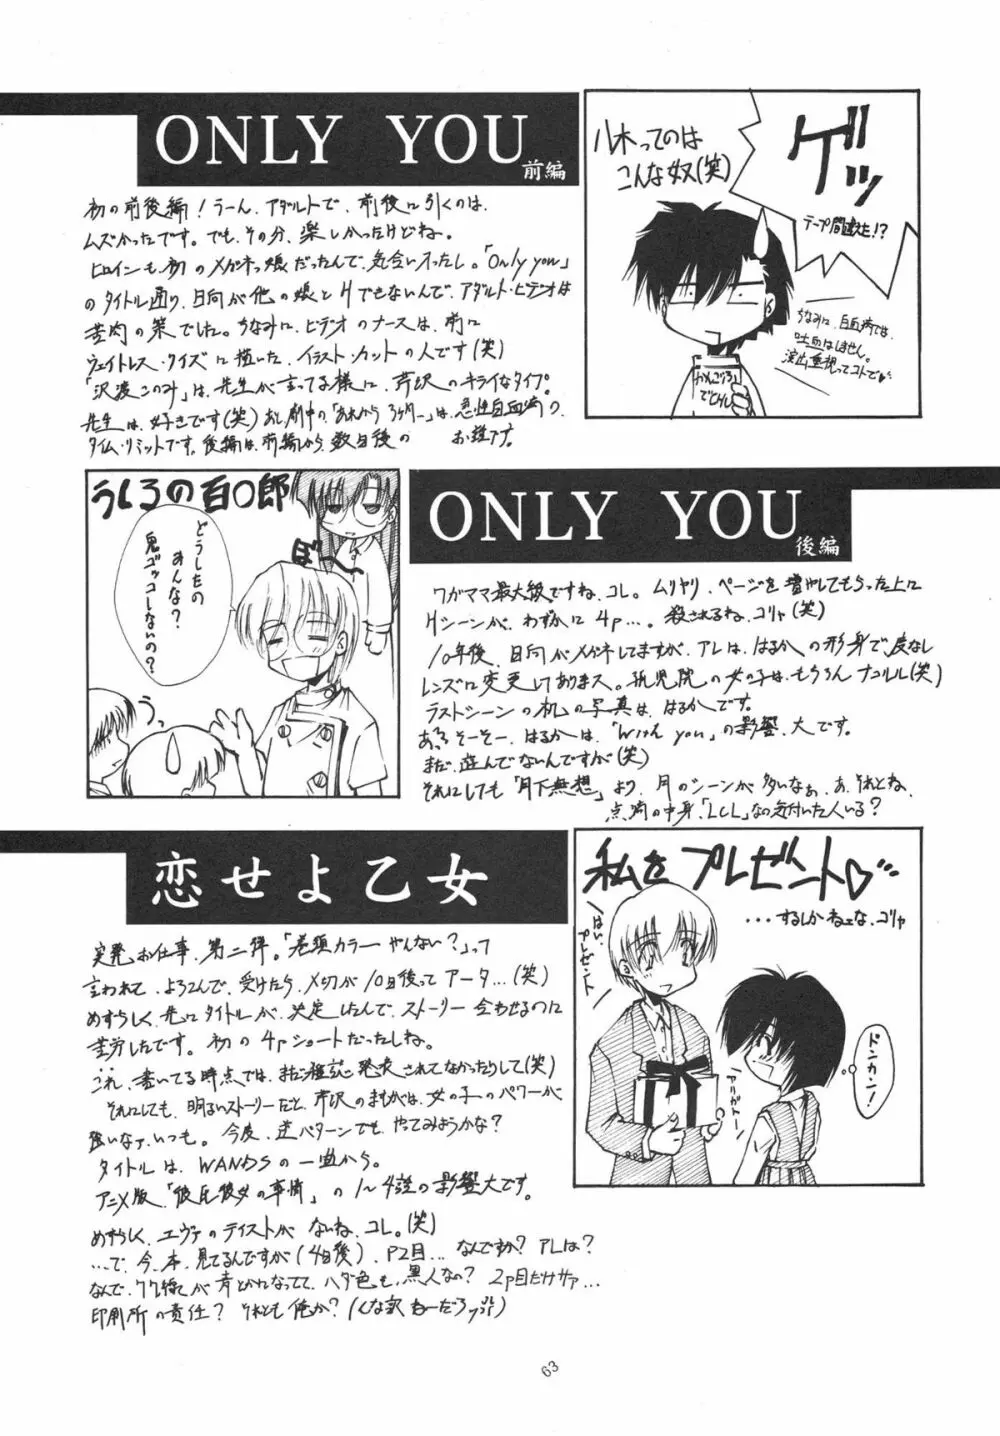 ONLY YOU
前編
初の前後編!うーん、アダルトで、前後に引くのは、
ムズかったです。でも、その分、楽しかったけどね。
ヒロインも、初のメガネっ娘だったんで、気合い入ったし。「Only you」
のタイトル通り、日向が他の娘とHできないんで、アダルト・ビデオは
苦肉の策でした。ちなみに、ビデオのナースは、前に
ウェイトレス・クイズに描いた、イラスト・カットの人です(笑)
「沢渡このみ」は、先生が言ってる様に、芹沢のキライなタイプ。
先生は、好きです(笑)あし劇中の「あれから3ヶ月—」は、急性白血病の、
タイム・リミットです。後編は、前編から、数日後の お話です。
八木ってのは
こんな奴(笑)
ゲッ
テープ間違えた!?
ちなみに、白血病では、
吐血はしません。
演出重視ってコトで♥
かんごろし
でCHし
うしろの百〇郎
ぼ〜
どうしたの
みんな?
鬼ゴッコしないの?
うっ
ONLY YOU
後編
ワガママ最大級ですね、コレ。ムリヤリ、ページを増やしてもらった上に
Hシーンが、わずかに4p…。殺されるね、コリャ(笑)
10年後、日向がメガネしてますが、アレは、はるかの形身で、度なし
レンズに変更してあります。孤児院の女の子は、もちろんナコルル(笑)
ラストシーンの机の写真は、はるかです。
あ、そーそー、はるかは、「With you」の影響、大です。
まだ、遊んでないんですが(笑)
それにしても「月下無想」より、月のシーンが多いなぁ、あ、それとね、
点滴の中身、「LCL」なの気付いた人いる?
恋せよ乙女
突発お仕事、第二弾。「巻頭カラーやんない?」って
言われて、よろこんで、受けたら、〆切が10日後ってアータ…(笑)
めずらしく、先にタイトルが、決定したんで、ストーリー合わせるのに
苦労したです。初の4pショートだったしね。
これ、書いてる時点では、まだ雑誌発表されてなかったりして(笑)
それにしても、明るいストーリーだと、芹沢のまんがは、女の子のパワーが
強いなァ、いつも。今度、逆パターンでも、やってみようかな?
タイトルは、WANDSの一曲から。
アニメ版、「彼氏彼女の事情」の1〜4話の影響大です。
めずらしく、エヴァのテイストがないね、コレ。(笑)
…で、今、本、見てるんですが(4日後)、P2目…なんですか?アレは?
なんで、フケ線が青とかになってて、ハダ色も、黒人なの?2p目だけサァ…
印刷所の責任?それとも俺か?
私をプレゼント♡
…するしかねェな、コリャ
はい、
プレゼント
アリガトー
ドンカン!
63